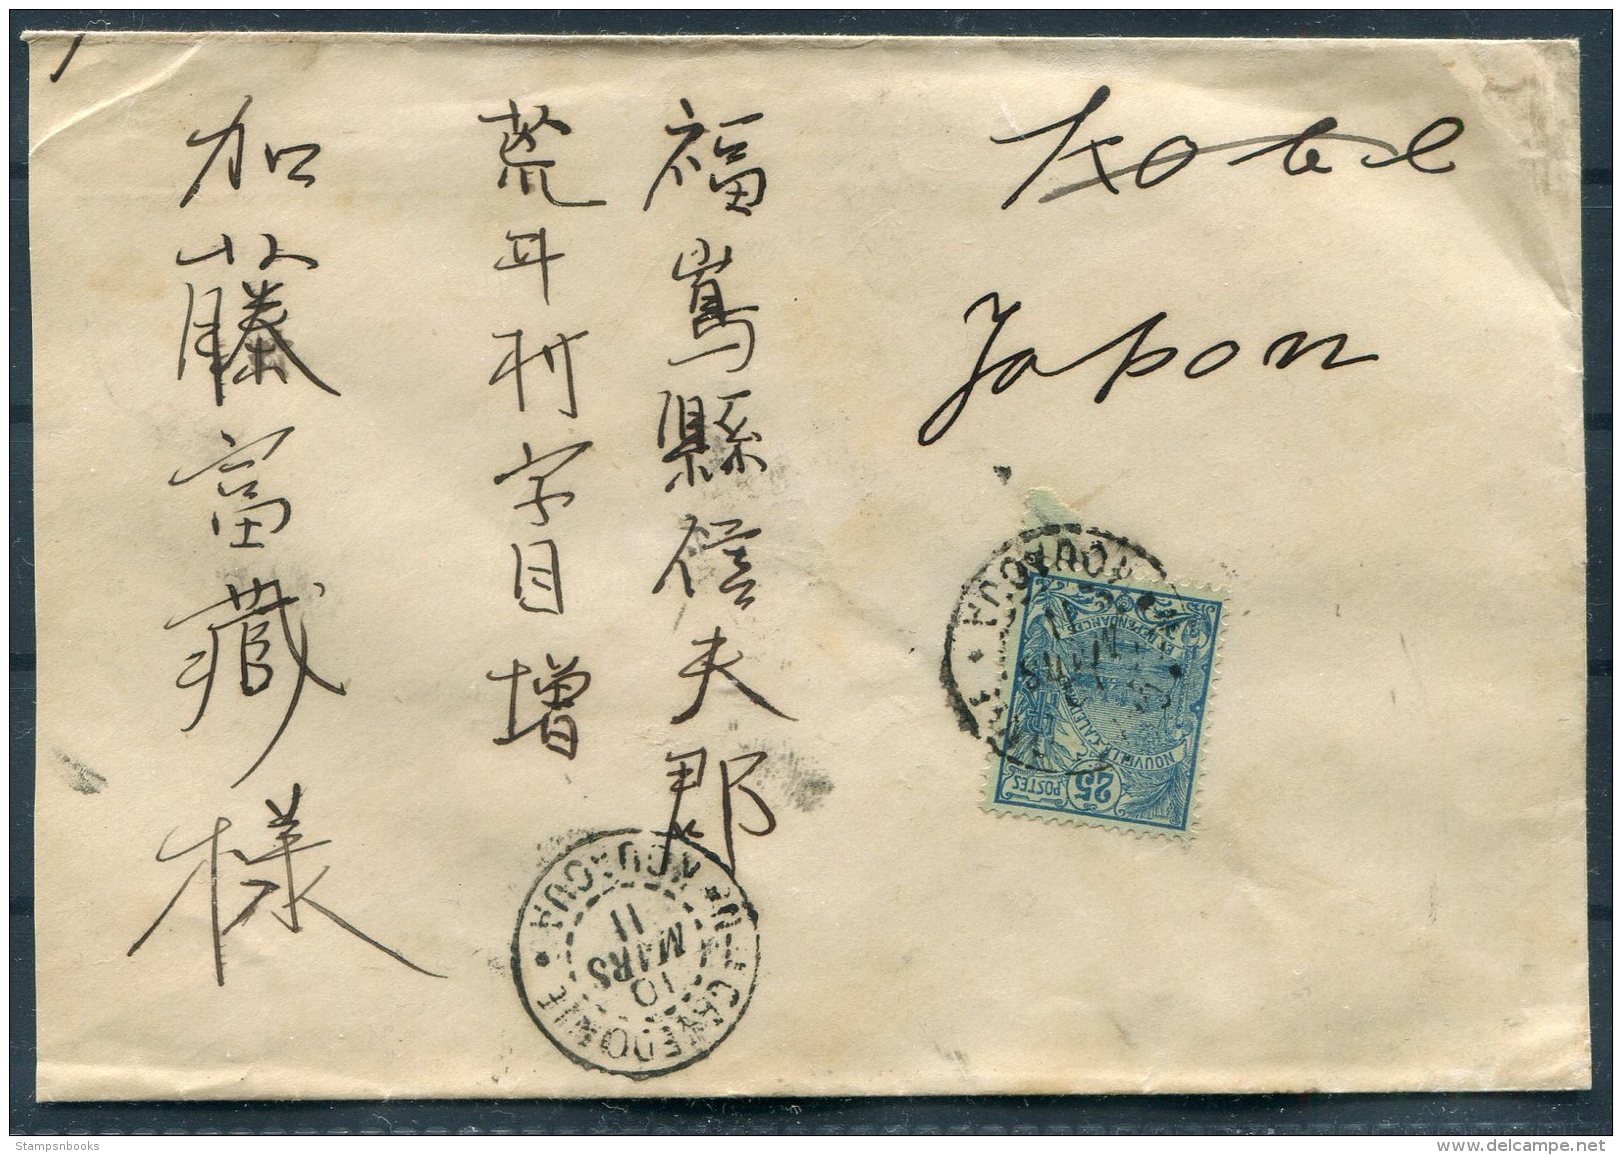 Kobe
Japon
福嶌縣信夫郡
荒井村字目増
加藤富藏様
NOUVLLE-CALEDONIE
ET DEPENDANCES
POSTES
25
MARS
11
Nlle CALEDONIE
10
MARS
11
Stampsnbooks
www.delcampe.net